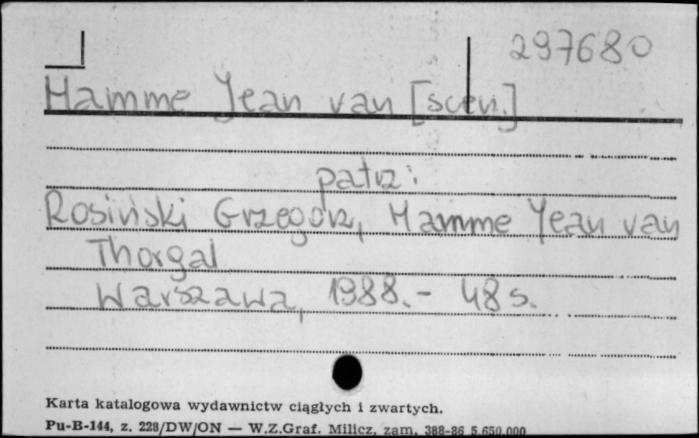 297680
Hamme Jean van [scen.]
patrz:
Rosiński Grzegorz, Hamme Jean van
Thorgal
Warszawa, 1988.- 48 s.
Karta katalogowa wydawnictw ciągłych i zwartych.
Pu-B-144, z. 228/DW/ON — W.Z.Graf. Milicz, zam. 388-86 5.650.000